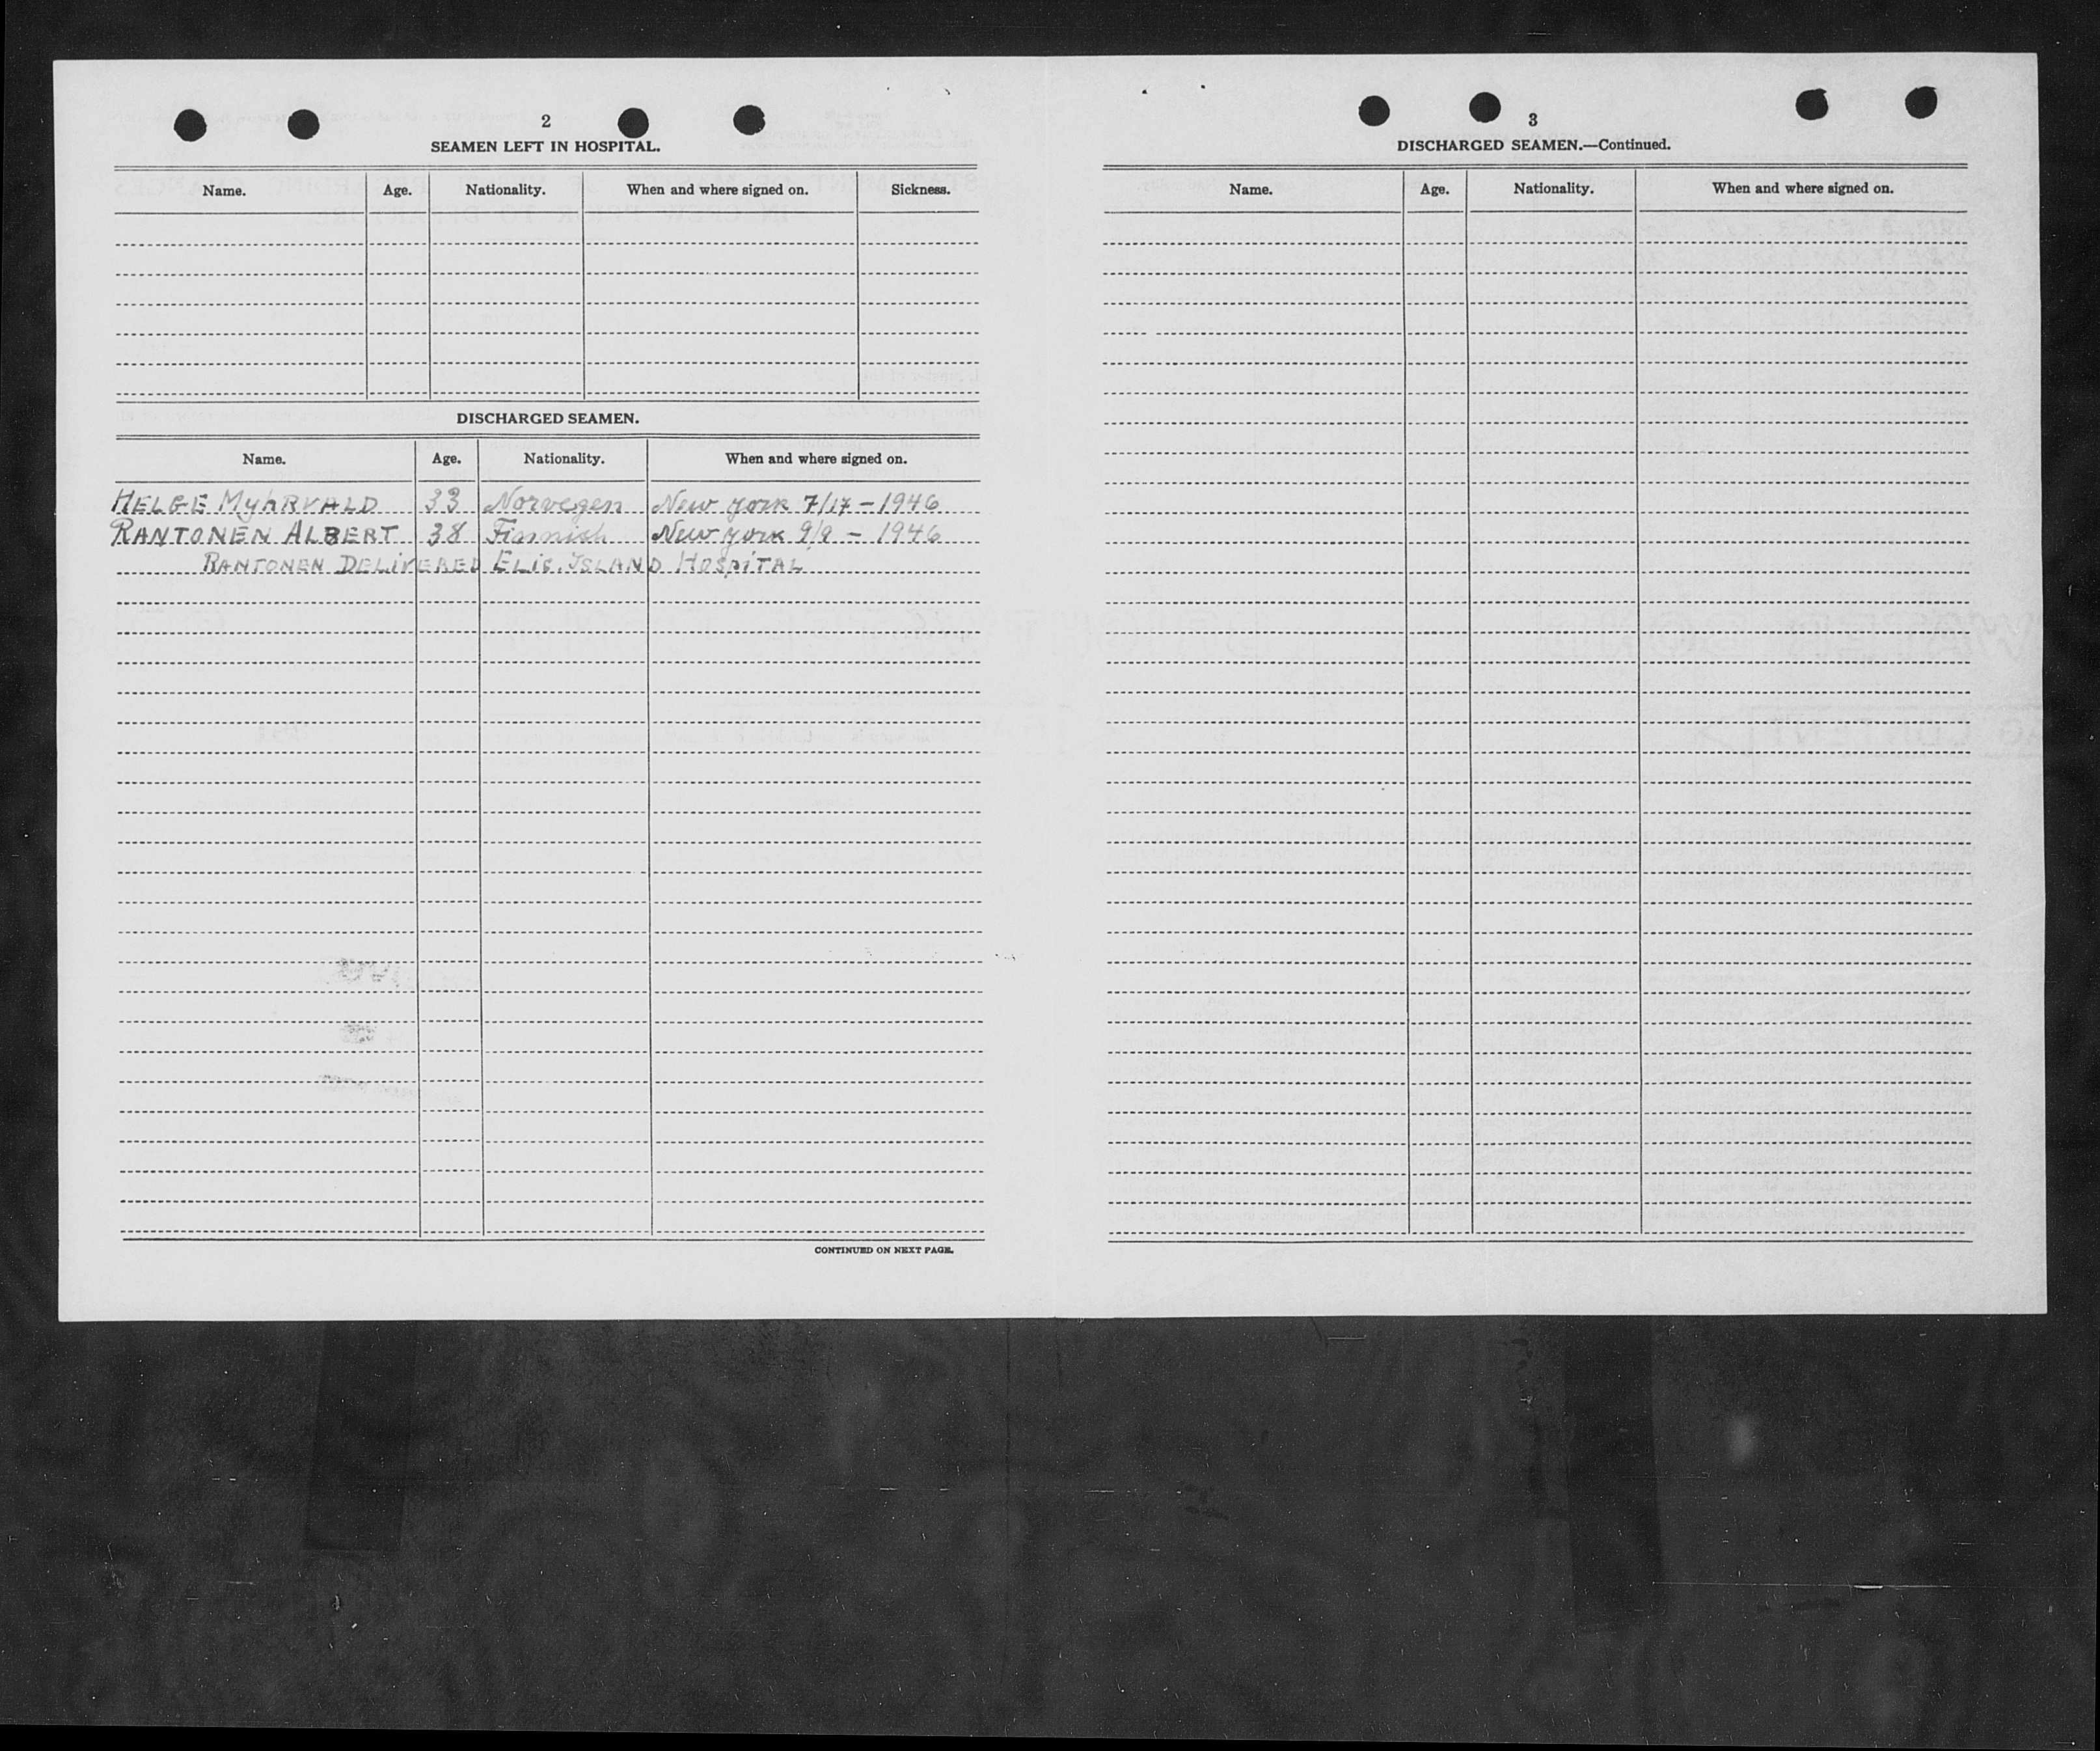 2
SEAMEN LEFT IN HOSPITAL.
Name. Age. Nationality. When and where signed on. Sickness.
DISCHARGED SEAMEN.
Name. Age. Nationality. When and where signed on.
HELGE MYHRVALD 33 Norvegen New york 7/17 - 1946
RANTONEN ALBERT 38 Finnish New york 9/9 - 1946
RANTONEN DELIVERED ELIS. ISLAND HOSPITAL
CONTINUED ON NEXT PAGE.
3
DISCHARGED SEAMEN.—Continued.
Name. Age. Nationality. When and where signed on.